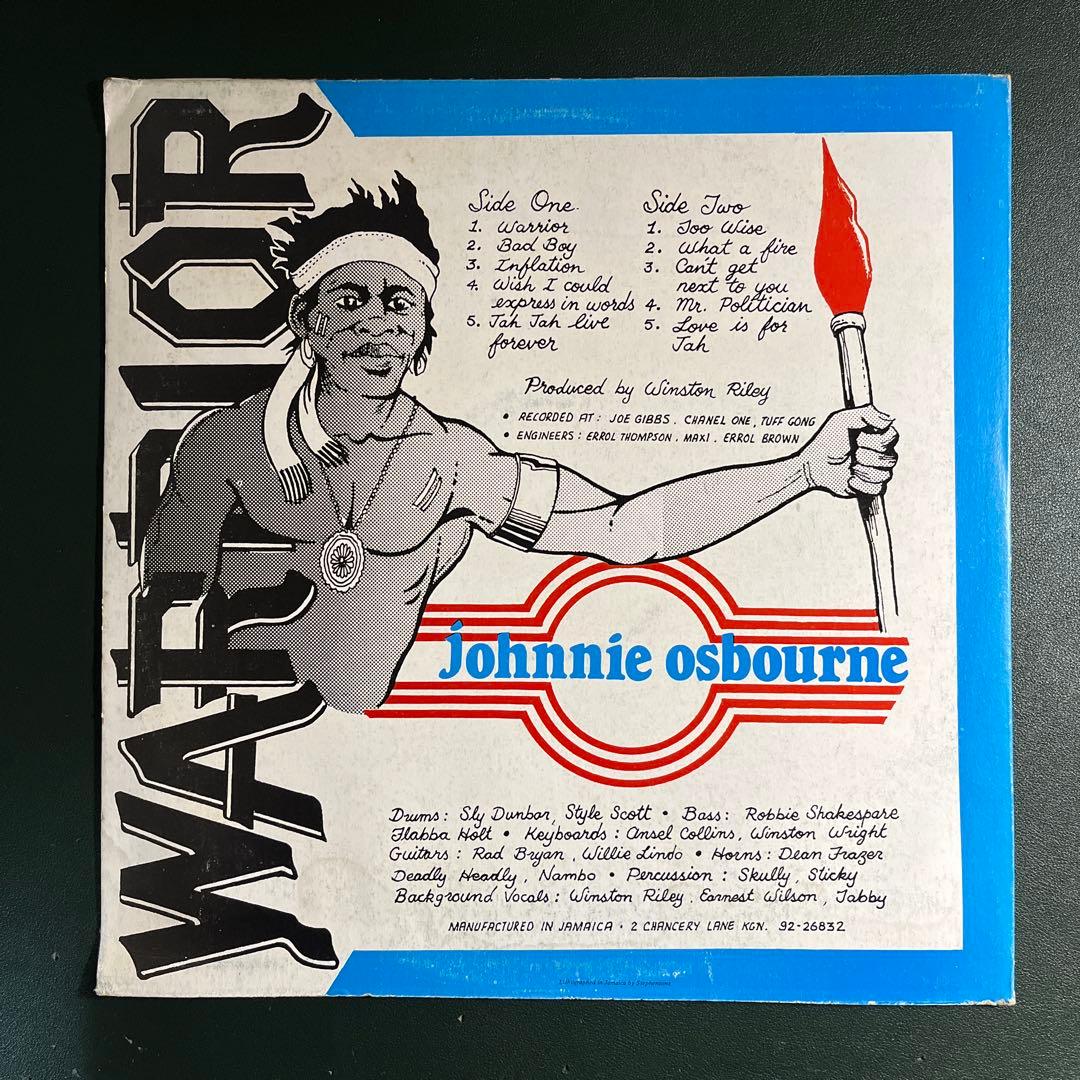 WARRIOR
Side One
1. Warrior
2. Bad Boy
3. Inflation
4. Wish I could
express in words
5. Jah Jah live
forever
Side Two
1. Too Wise
2. What a fire
3. Can't get
next to you
4. Mr. Politician
5. Love is for
Jah
Produced by Winston Riley
• RECORDED AT : JOE GIBBS . CHANEL ONE , TUFF GONG
• ENGINEERS : ERROL THOMPSON . MAXI . ERROL BROWN
johnnie osbourne
Drums : Sly Dunbar, Style Scott • Bass : Robbie Shakespare
Flabba Holt • Keyboards : Ansel Collins, Winston Wright
Guitars : Rad Bryan , Willie Lindo • Horns : Dean Frazer
Deadly Headly , Nambo • Percussion : Skully , Sticky
Background Vocals : Winston Riley . Earnest Wilson , Tabby
MANUFACTURED IN JAMAICA • 2 CHANCERY LANE KGN. 92-26832
Lithographed in Jamaica by Stephensons